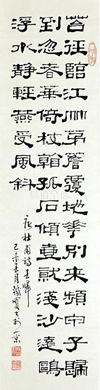 苔徑臨江竹茅簷覆地花別來頻甲子歸
到忽春華倚杖看孤石傾壺就淺沙遠鷗
浮水靜輕燕受風斜
杜甫詩春歸